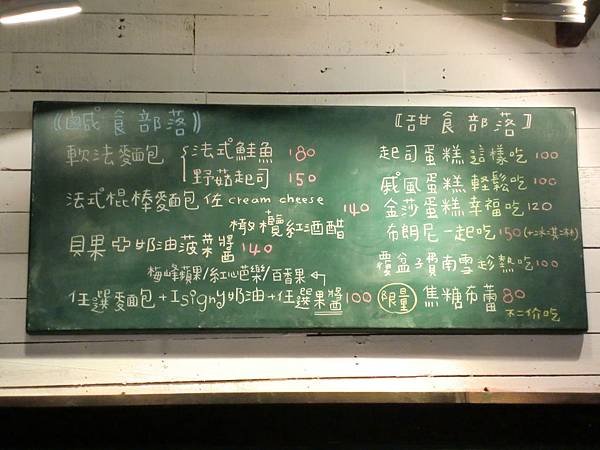 《鹹食部落》
軟法麵包 { 法式鮭魚 180
野菇起司 150
法式棍棒麵包 佐 cream cheese 140
橄欖紅酒醋
貝果 奶油菠菜醬 140
梅峰蘋果/紅心芭樂/百香果
任選麵包+Isigny奶油+任選果醬100
〖甜食部落〗
起司蛋糕 這樣吃 100
戚風蛋糕 輕鬆吃 100
金莎蛋糕 幸福吃 120
布朗尼一起吃 150 (+冰淇淋)
覆盆子費南雪 趁熱吃 100
限量 焦糖布蕾 80
不二价吃